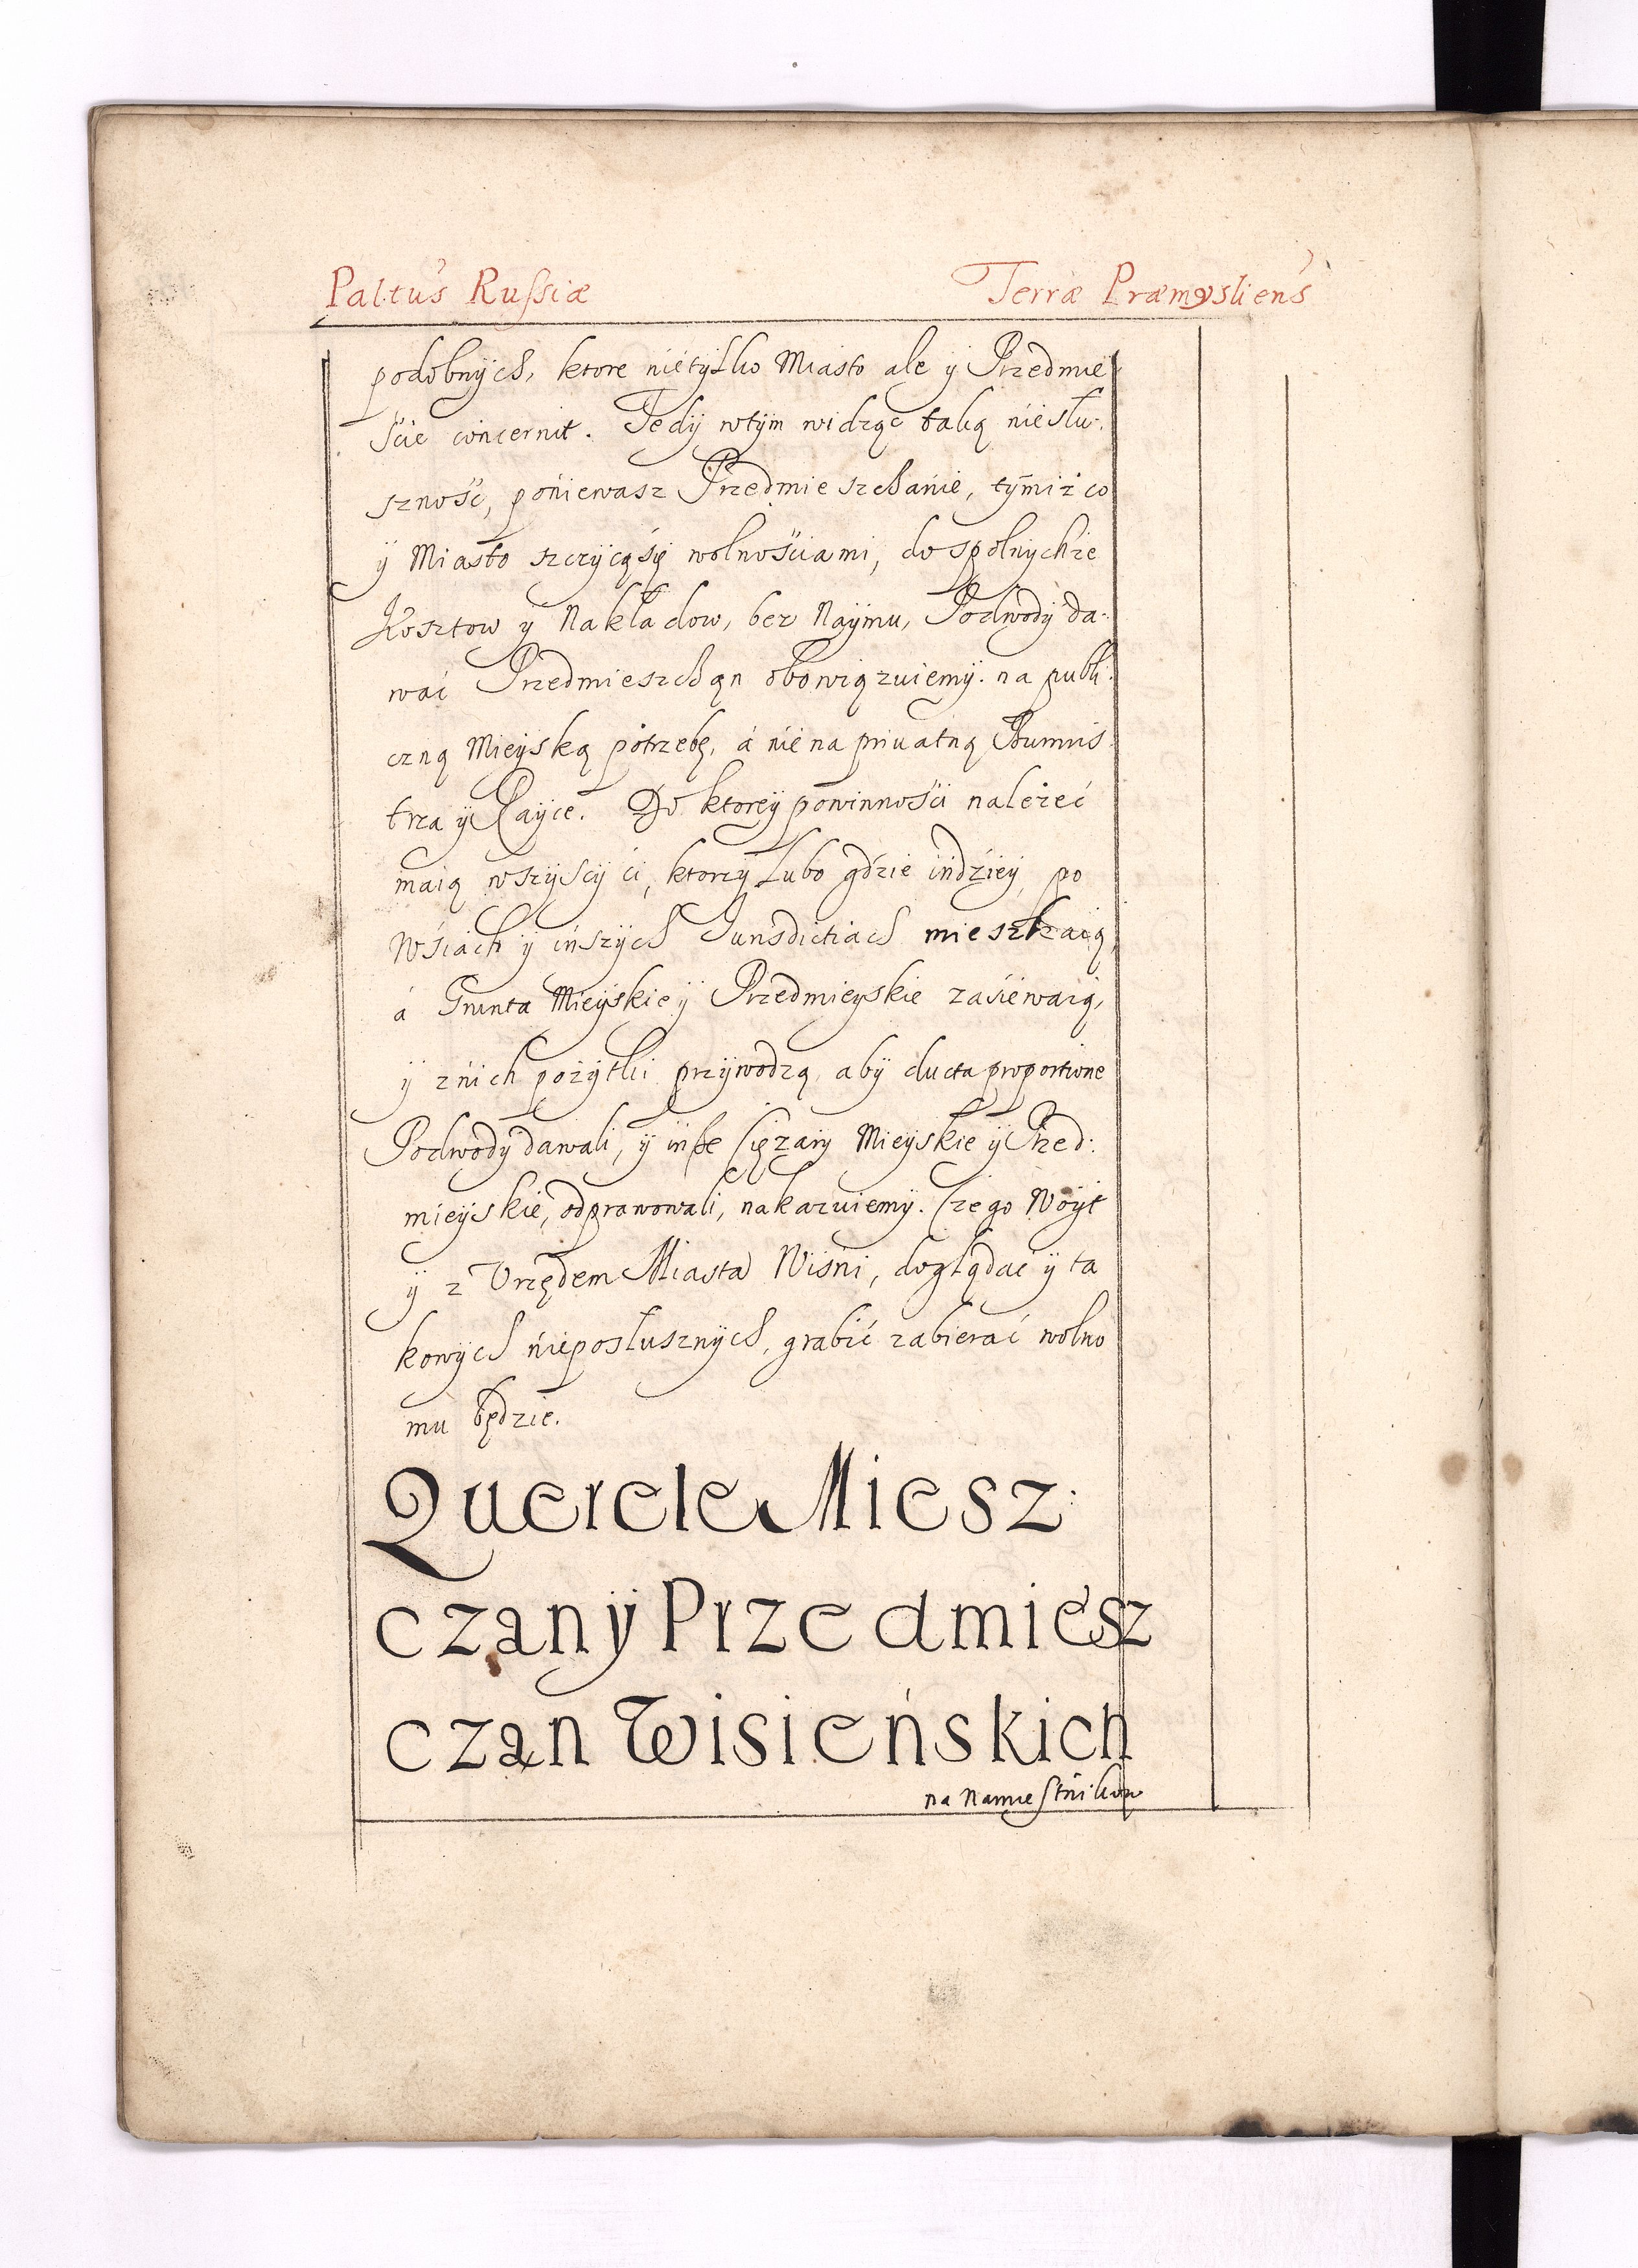 Paltus Russiæ Terræ Præmysliens
podobnÿch, ktore nietÿlko Miasto ale ÿ Przedmie
ście concernit. Tedÿ wtÿm widząc taką niesłu:
szność, poniewasz Przedmieszchanie, tÿmiż co
ÿ Miasto szczÿcąśię wolnościami, do spolnÿchże
Kosztow ÿ Nakładow, bez Naÿmu, Podwodÿ da:
wać Przedmieszchąn obowiązuiemÿ. na publi:
czną Mieÿską potrzebę, á nie na priuatną Burmis
trza ÿ Raÿce. Do ktoreÿ powinnośći należeć
maią wszÿscÿ ći, ktorzÿ lubo gdźie indźieÿ, po
Wśiach ÿ inszÿch Iurisdictiach mieszkaią,
á Grunta Mieÿskie ÿ Przedmieyskie zaśiewaią,
ÿ znich pożÿtki przÿwodzą, abÿ ducta proportione
Podwodÿ dawali, ÿ inße Ciężarÿ Mieÿskie ÿ Przed:
mieÿskie, odprawowali, nakazuiemÿ. Czego Woÿt
ÿ z Vrzędem Miasta Wiśni, doglądać ÿ ta
kowÿch nieposłusznÿch, grabić zabierać wolno
mu będzie.
Querele Miesz:
czan ÿ Przedmiesz
czan Wisieńskich
na Namiestnikow